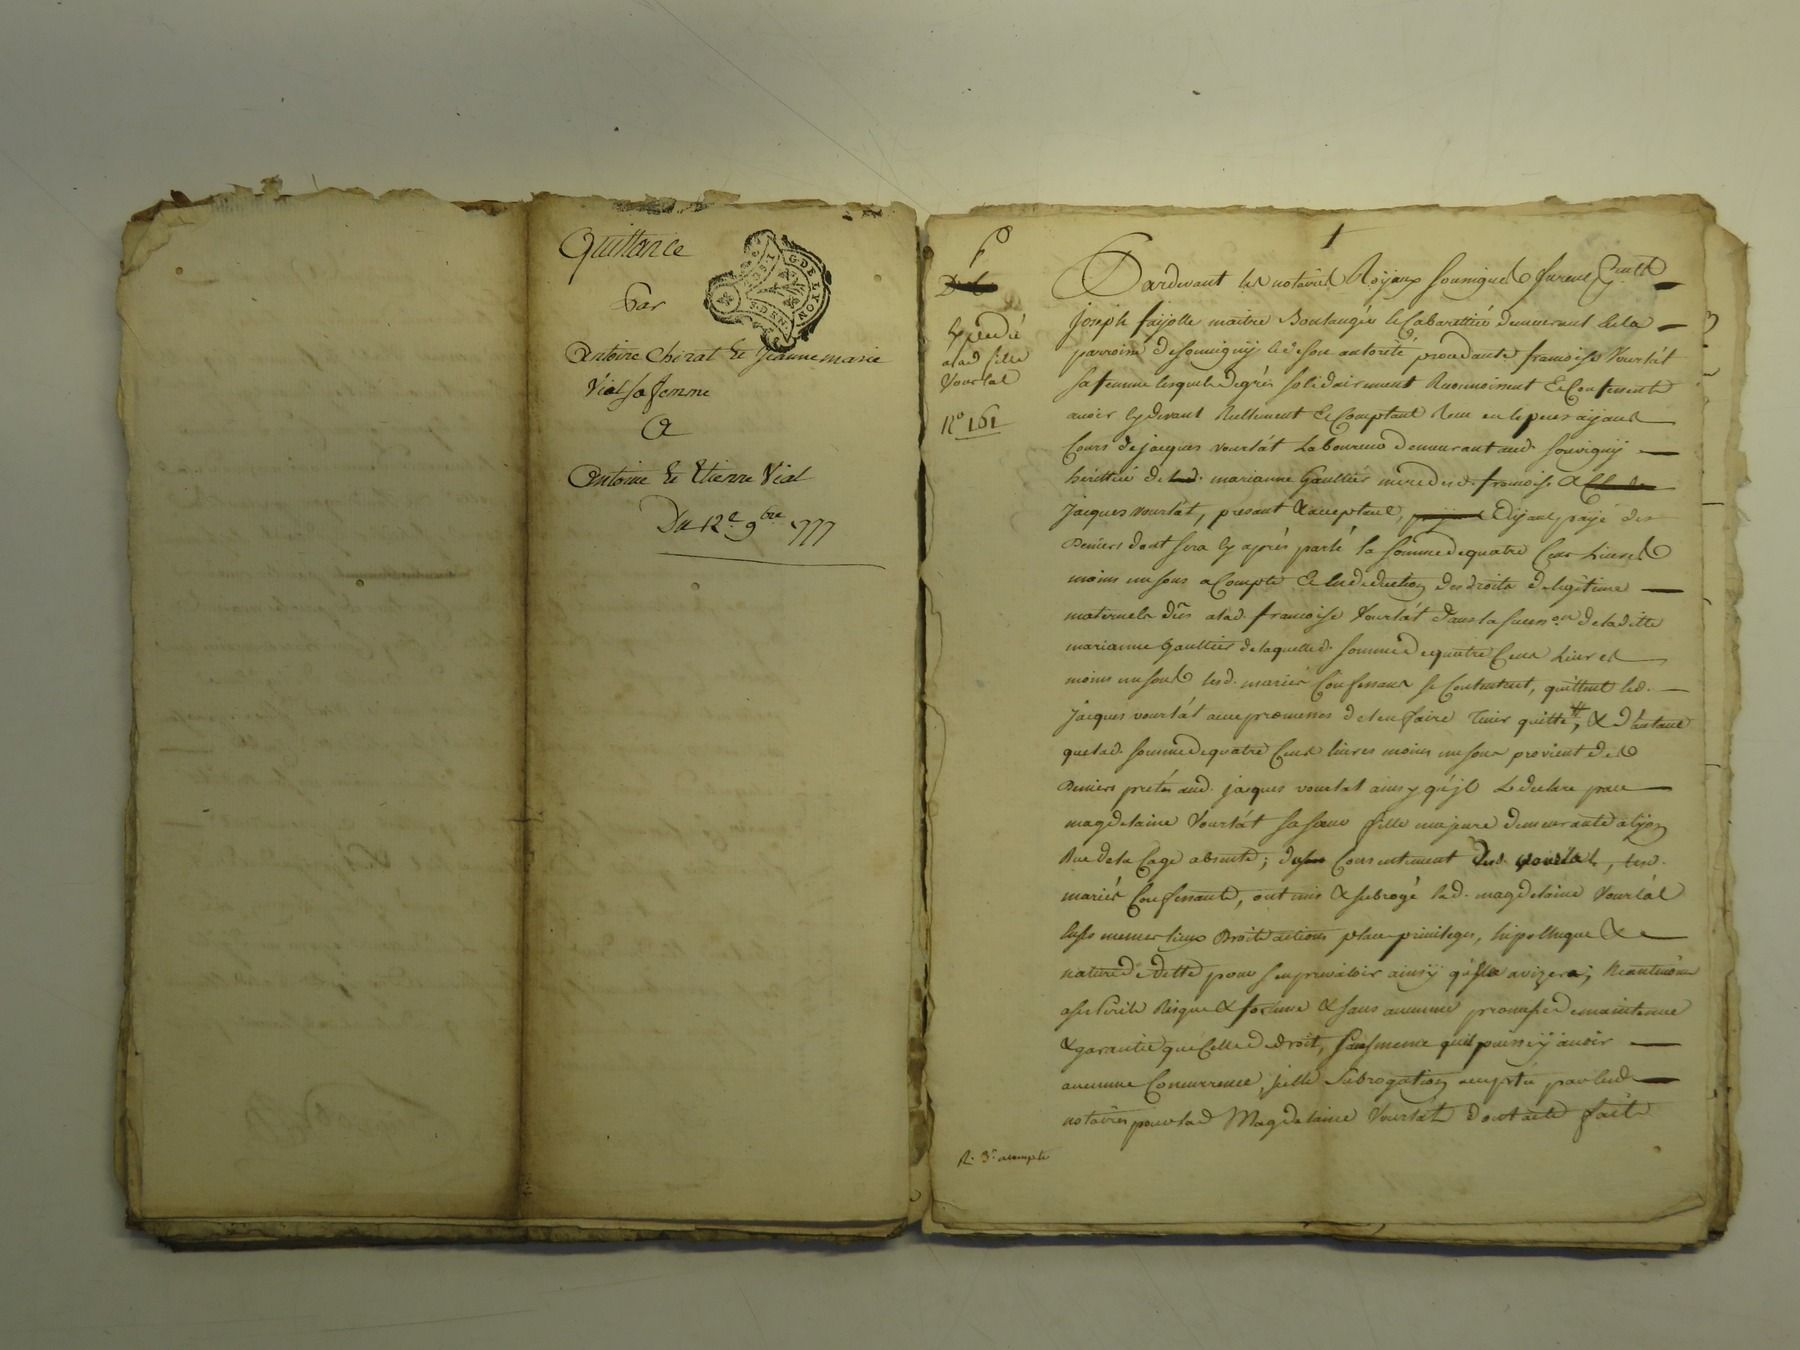 Quittance
G. DE LYON
Par
Antoine Chirat & Jeanne marie
Vial sa femme
A
Antoine & Etienne Vial
Du 12e 9bre 1777
1
Expedié
alad fille
Vourlat
No 161
Pardevant les notaires Royaux soussignés furent
Joseph fayolle maitre Boulangér & Cabarettiér demeurant
parroisse de souvigny & de son autorité procedante françoise Vourlat
sa femme lesquels de grés solidairement Reconnoissent & Confessent
avoir cy devant Réellement & Comptant Reçu en especes ayant
Cours de jacques vourlat Laboureur demeurant aud. souvigny
héritiér de marianne Gaultiér mere desd. françoise &
Jacques vourlat, present & acceptant, payé des
Deniers dont sera cy aprés parlé la somme de quatre Cens Livres
moins un sous a Compte & en deduction des droits de legitime
maternels dûs alad. françoise Vourlat dans la succeson de laditte
marianne Gaultier de laquelle d. somme de quatre Cens Livres
moins un sous lesd. mariés Confessans se Contentent, quittent led.
Jacques vourlat avec promesses de l'en faire tenir quitte, & d'autant
que lad. somme de quatre Cens livres moins un sous provient des
Deniers pretés aud. jacques vourlat ainsy qu'jl Le declare par
magdelaine Vourlat sa sœur fille majeure demeurante a lyon
Rue de la Cage absente; du Consentement dud. vourlat, lesd.
mariés Confessants, ont mis & subrogé lad. magdelaine Vourlat
en ses memes lieux Droits actions place privileges, hipotheque &
nature de dette pour s'en prevaloir ainsy qu'elle avizera; Neantmoins
a ses perils Risque & fortune & sans aucune promesse de maintenue
& garantie que celle de droit, sans meme qu'il puisse y avoir
aucune Concurrence, jcelle Subrogation acceptée par lesd
notaires pour lad Magdelaine Vourlat dont acte fait
R. 3s acompte